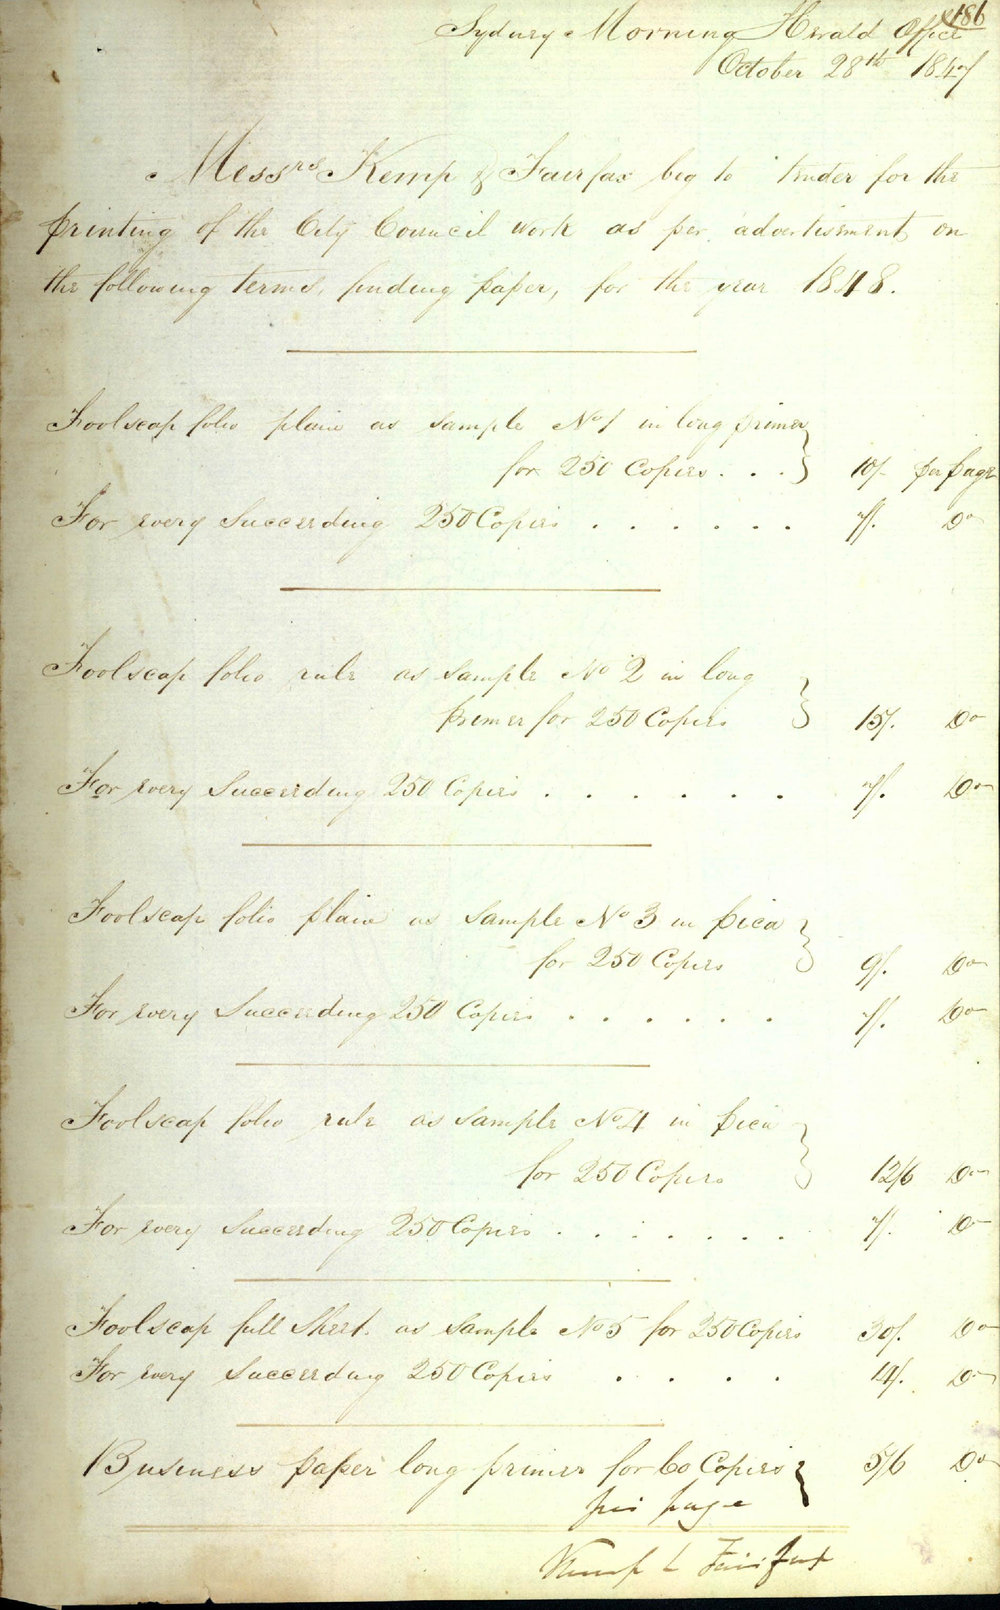 186
Sydney Morning Herald Office
October 28th 1847
Messrs Kemp & Fairfax beg to tender for the
printing of the City Council work as per advertisement, on
the following terms, finding paper, for the year 1848.
Foolscap folio plain as sample No 1 in long primer
for 250 Copies . . . 10/- per page
For every Succeeding 250 Copies . . . . . . Do
Foolscap folio rule as sample No 2 in long
primer for 250 Copies 15/. Do
For every Succeeding 250 Copies . . . . . . . Do
Foolscap folio plain as sample No 3 in pica
for 250 Copies 9/. Do
For every Succeeding 250 Copies . . . . . . Do
Foolscap folio rule as sample No 4 in pica
for 250 Copies 12/6 Do
For every Succeeding 250 Copies . . . . . . . Do
Foolscap full Sheet. as sample No 5 for 250 Copies 30/. Do
For every Succeeding 250 Copies . . . . 4/. Do
Business paper long primer for 60 Copies 5/6 Do
per page
Kemp & Fairfax